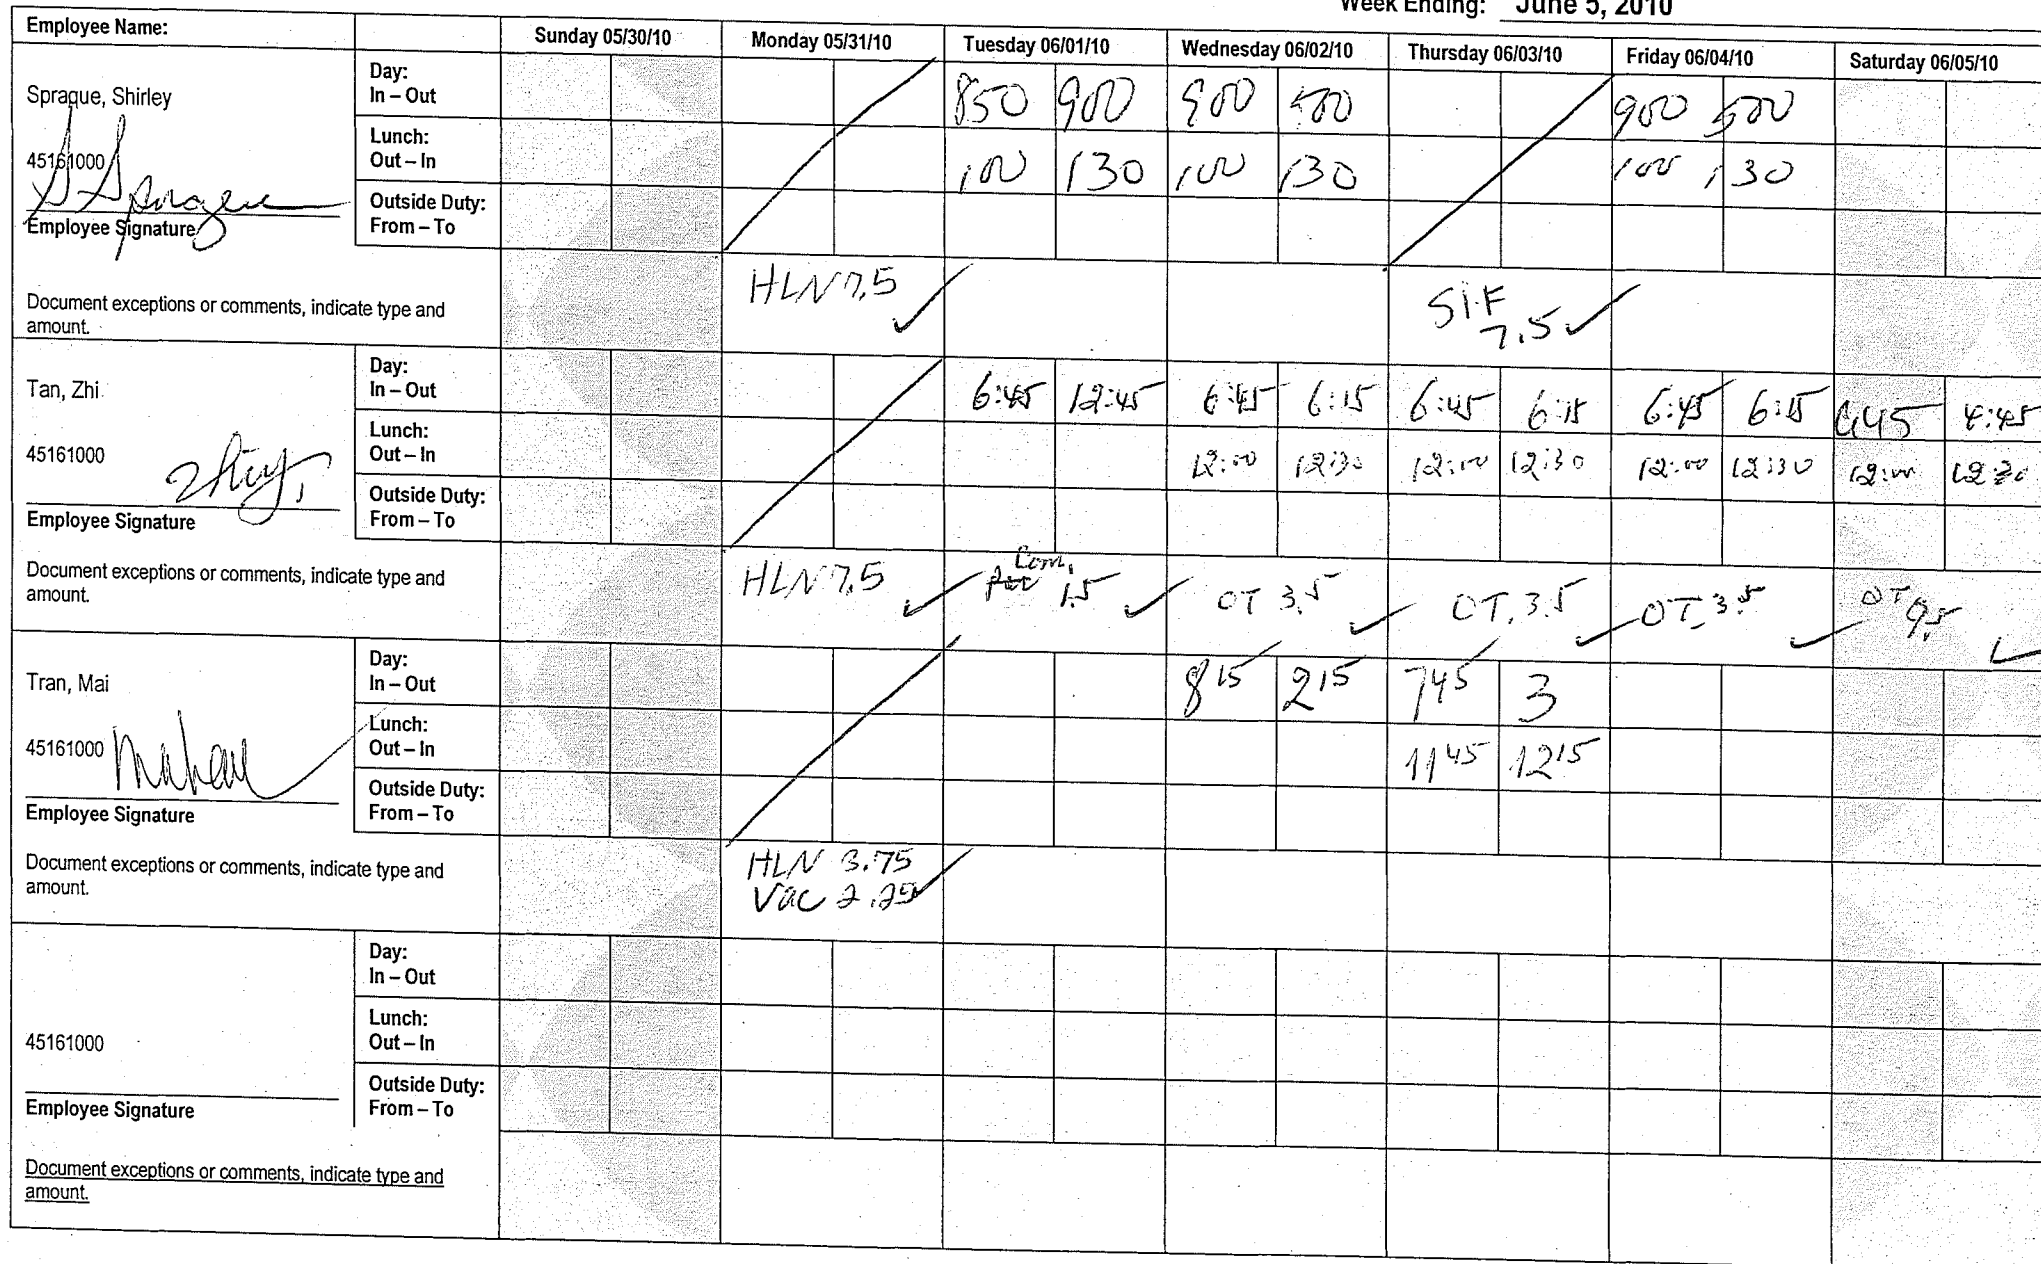 Week Ending: June 5, 2010
Employee Name: Sunday 05/30/10 Monday 05/31/10 Tuesday 06/01/10 Wednesday 06/02/10 Thursday 06/03/10 Friday 06/04/10 Saturday 06/05/10
Sprague, Shirley
45161000
S Sprague
Employee Signature
Day:
In – Out 850 900 900 500 900 500
Lunch:
Out – In 100 130 100 130 100 130
Outside Duty:
From – To
Document exceptions or comments, indicate type and
amount.
HLN 7.5
SIF
7.5
Tan, Zhi
45161000
Employee Signature
Day:
In – Out 6:45 12:45 6:45 6:15 6:45 6:15 6:45 6:15 645 4:45
Lunch:
Out – In 12:00 12:30 12:00 12:30 12:00 12:30 12:00 12:30
Outside Duty:
From – To
Document exceptions or comments, indicate type and
amount.
HLN 7.5 Com. 1.5 OT 3.5 OT. 3.5 OT. 3.5 OT 9.5
Tran, Mai
45161000
Employee Signature
Day:
In – Out 815 215 745 3
Lunch:
Out – In 1145 1215
Outside Duty:
From – To
Document exceptions or comments, indicate type and
amount.
HLN 3.75
Vac 2.25
45161000
Employee Signature
Day:
In – Out
Lunch:
Out – In
Outside Duty:
From – To
Document exceptions or comments, indicate type and
amount.